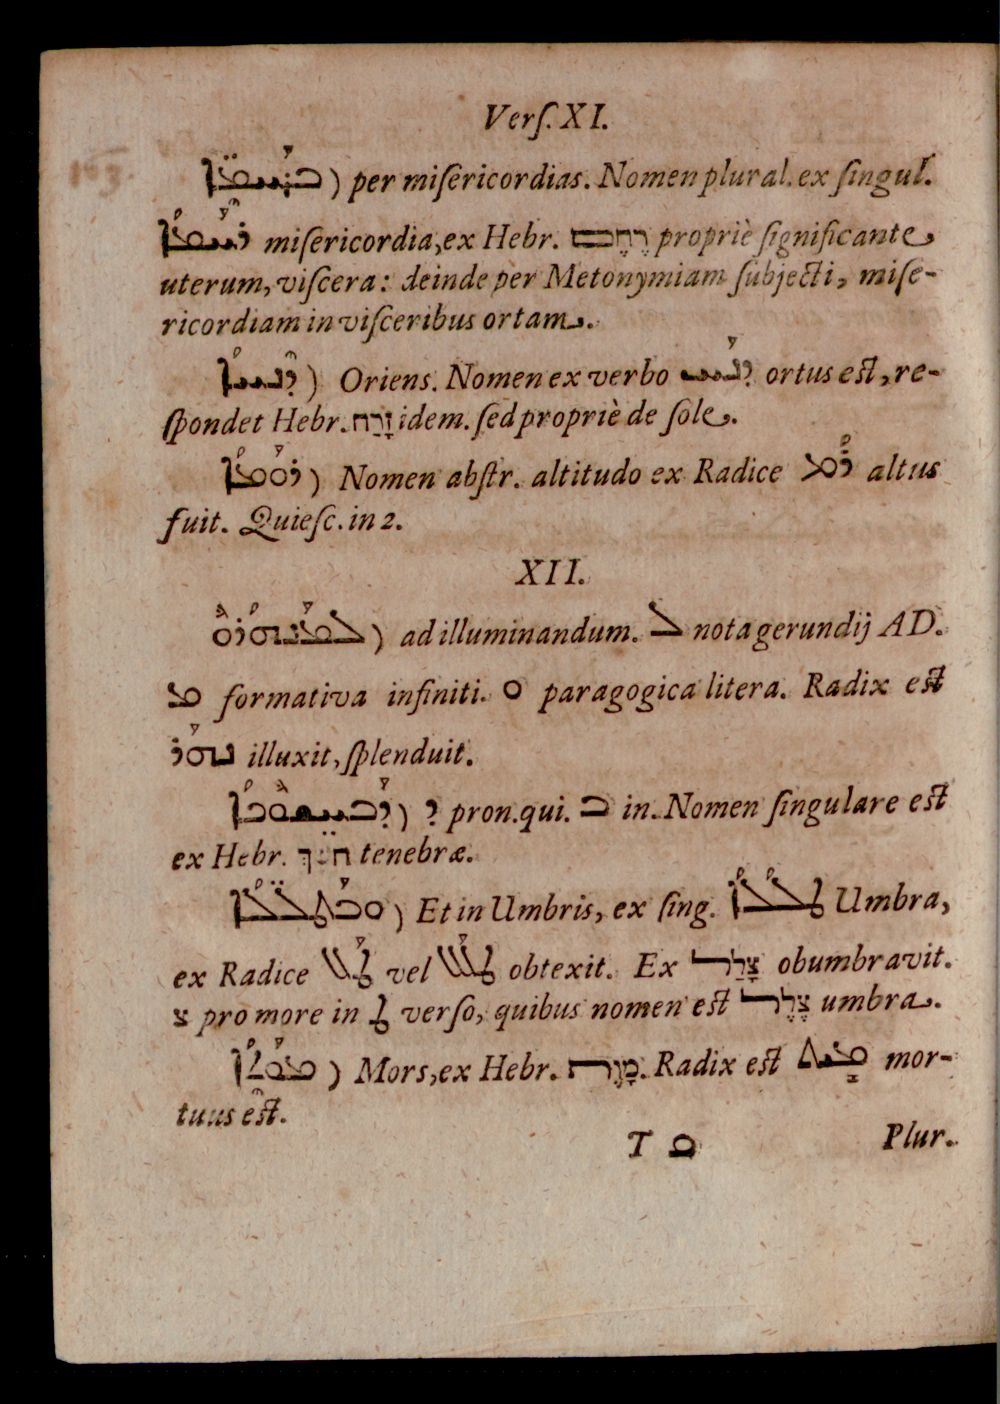 Verſ. XI.
ܒܪ̈ܚܡܐ ) per miſericordias. Nomen plural. ex ſingul.
ܪܚܡܐ miſericordia, ex Hebr. רֶחֶם propriè ſignificante
uterum, viſcera: deinde per Metonymiam ſubjecti, miſe-
ricordiam in viſceribus ortam.
ܕܢܚܐ ) Oriens. Nomen ex verbo ܕܢܚ ortus eſt, re-
ſpondet Hebr. זָרַח idem. ſed propriè de ſole.
ܪܘܡܐ ) Nomen abſtr. altitudo ex Radice ܪܡ altus
fuit. Quieſc. in 2.
XII.
ܠܡܢܗܪܘ ) ad illuminandum. ܠ nota gerundij AD.
ܡ formativa infiniti. ܘ paragogica litera. Radix eſt
ܢܗܪ illuxit, ſplenduit.
ܕܒܚܫܘܟܐ ) ܕ pron. qui. ܒ in. Nomen ſingulare eſt
ex Hebr. tenebræ.
ܘܒܛܠܠ̈ܐ ) Et in Umbris, ex ſing. ܛܠܠܐ Umbra,
ex Radice ܛܠ vel ܛܠܠ obtexit. Ex צָלַל obumbravit.
צ pro more in ܛ verſo, quibus nomen eſt צֶלֶל umbra.
ܡܘܬܐ ) Mors, ex Hebr. מָוֶת. Radix eſt ܡܝܬ mor-
tuus eſt.
T ܡ Plur.